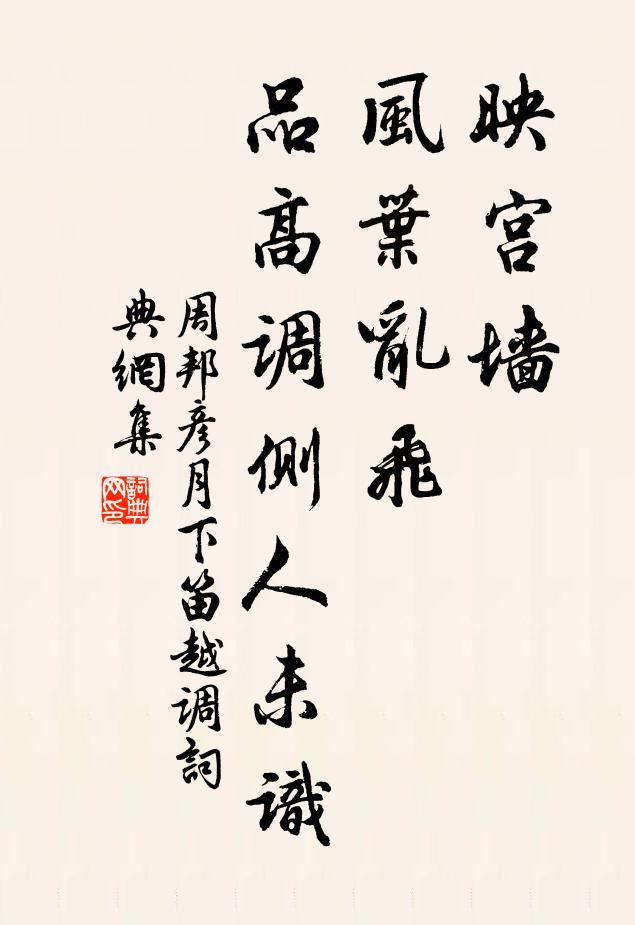 映宫墙
風葉亂飛
品高调側人未識
周邦彦月下笛越调詞
典網集
詞典网印